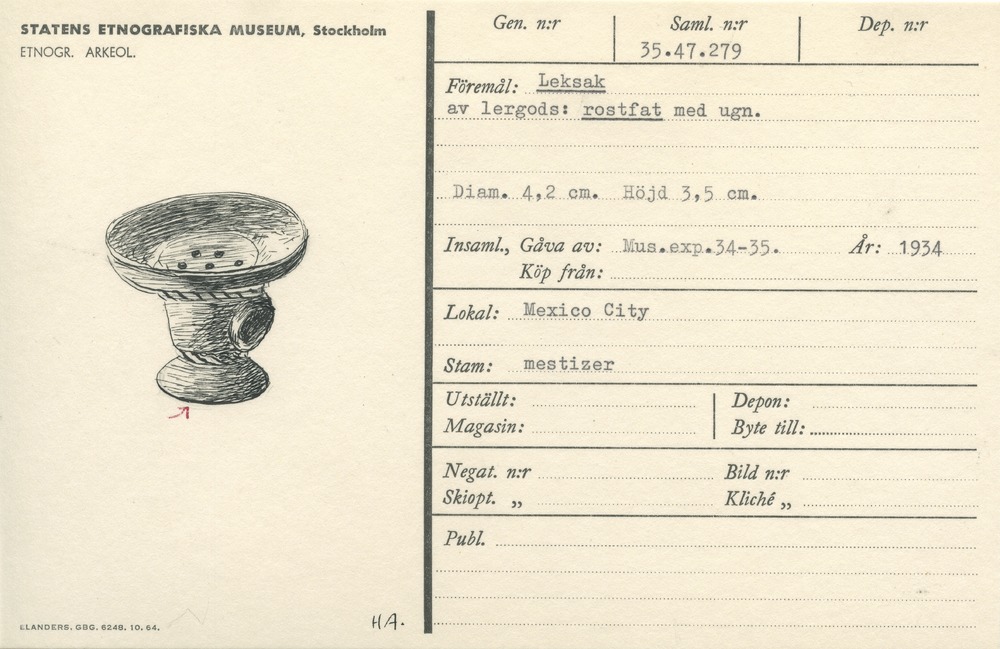 STATENS ETNOGRAFISKA MUSEUM, Stockholm
ETNOGR. ARKEOL.
Gen. n:r
Saml. n:r
35.47.279
Dep. n:r
Föremål: Leksak
av lergods: rostfat med ugn.
Diam. 4,2 cm. Höjd 3,5 cm.
Insaml., Gåva av: Mus.exp.34-35. År: 1934
Köp från:
Lokal: Mexico City
Stam: mestizer
Utställt: Depon:
Magasin: Byte till:
Negat. n:r Bild n:r
Skiopt. „ Kliché „
Publ.
ELANDERS. GBG. 6248. 10. 64.
HA.